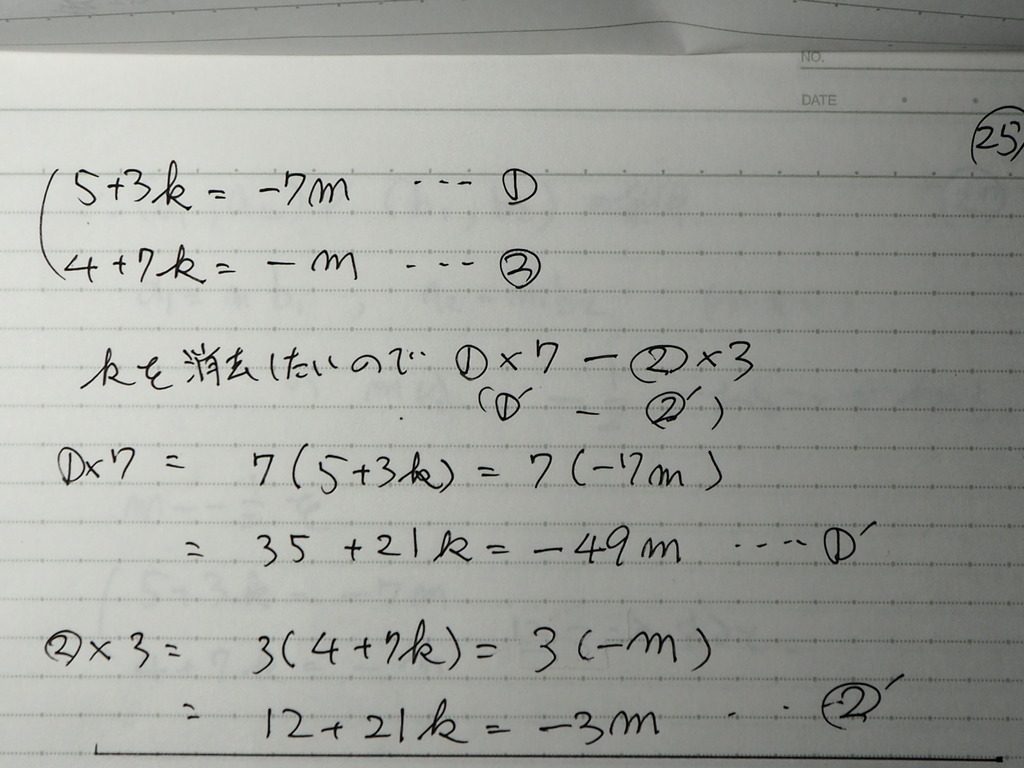 NO.
DATE
25
5+3k = -7m ---- ①
4+7k = -m ---- ②
kを消去したいので ①×7 - ②×3
(①′ - ②′)
①×7 = 7(5+3k) = 7(-7m)
= 35+21k = -49m ---- ①′
②×3 = 3(4+7k) = 3(-m)
= 12+21k = -3m -- ②′